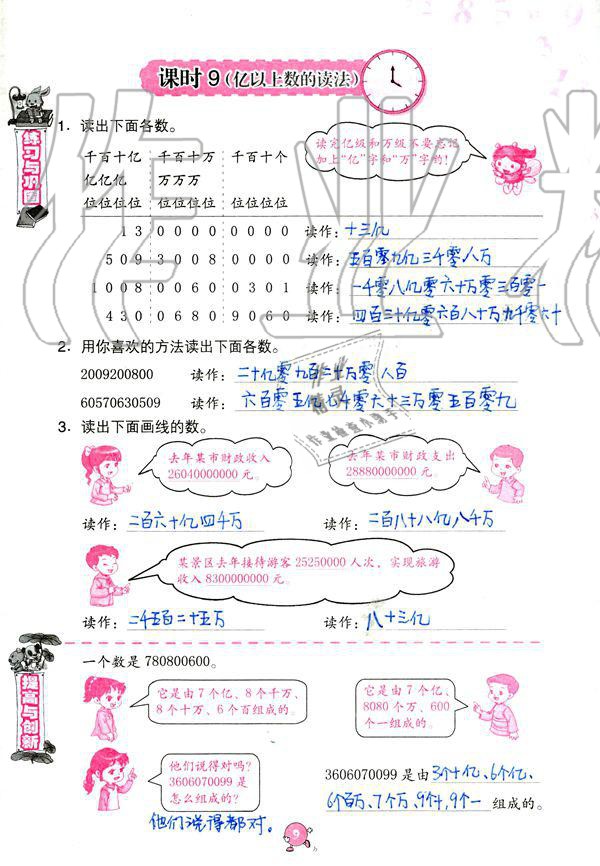 课时 9（亿以上数的读法）
练习与巩固
1. 读出下面各数。
读完亿级和万级不要忘记
加上“亿”字和“万”字哟！
千百十亿 千百十万 千百十个
亿亿亿 万万万
位位位位 位位位位 位位位位
1 3 0 0 0 0 0 0 0 0 读作：十三亿
5 0 9 3 0 0 8 0 0 0 0 读作：五百零九亿三千零八万
1 0 0 8 0 0 6 0 0 3 0 1 读作：一千零八亿零六十万零三百零一
4 3 0 0 6 8 0 9 0 6 0 读作：四百三十亿零六百八十万九千零六十
2. 用你喜欢的方法读出下面各数。
2009200800 读作：二十亿零九百二十万零八百
60570630509 读作：六百零五亿七千零六十三万零五百零九
3. 读出下面画线的数。
去年某市财政收入
26040000000 元。
去年某市财政支出
28880000000 元。
读作：二百六十亿四千万 读作：二百八十八亿八千万
某景区去年接待游客 25250000 人次，实现旅游
收入 8300000000 元。
读作：二千五百二十五万 读作：八十三亿
提高与创新
一个数是 780800600。
它是由 7 个亿、8 个千万、
8 个十万、6 个百组成的。
它是由 7 个亿、
8080 个万、600
个一组成的。
他们说得对吗？
3606070099 是
怎么组成的？
3606070099 是由3个十亿、6个亿、
6个百万、7个万、9个十、9个一 组成的。
他们说得都对。
9